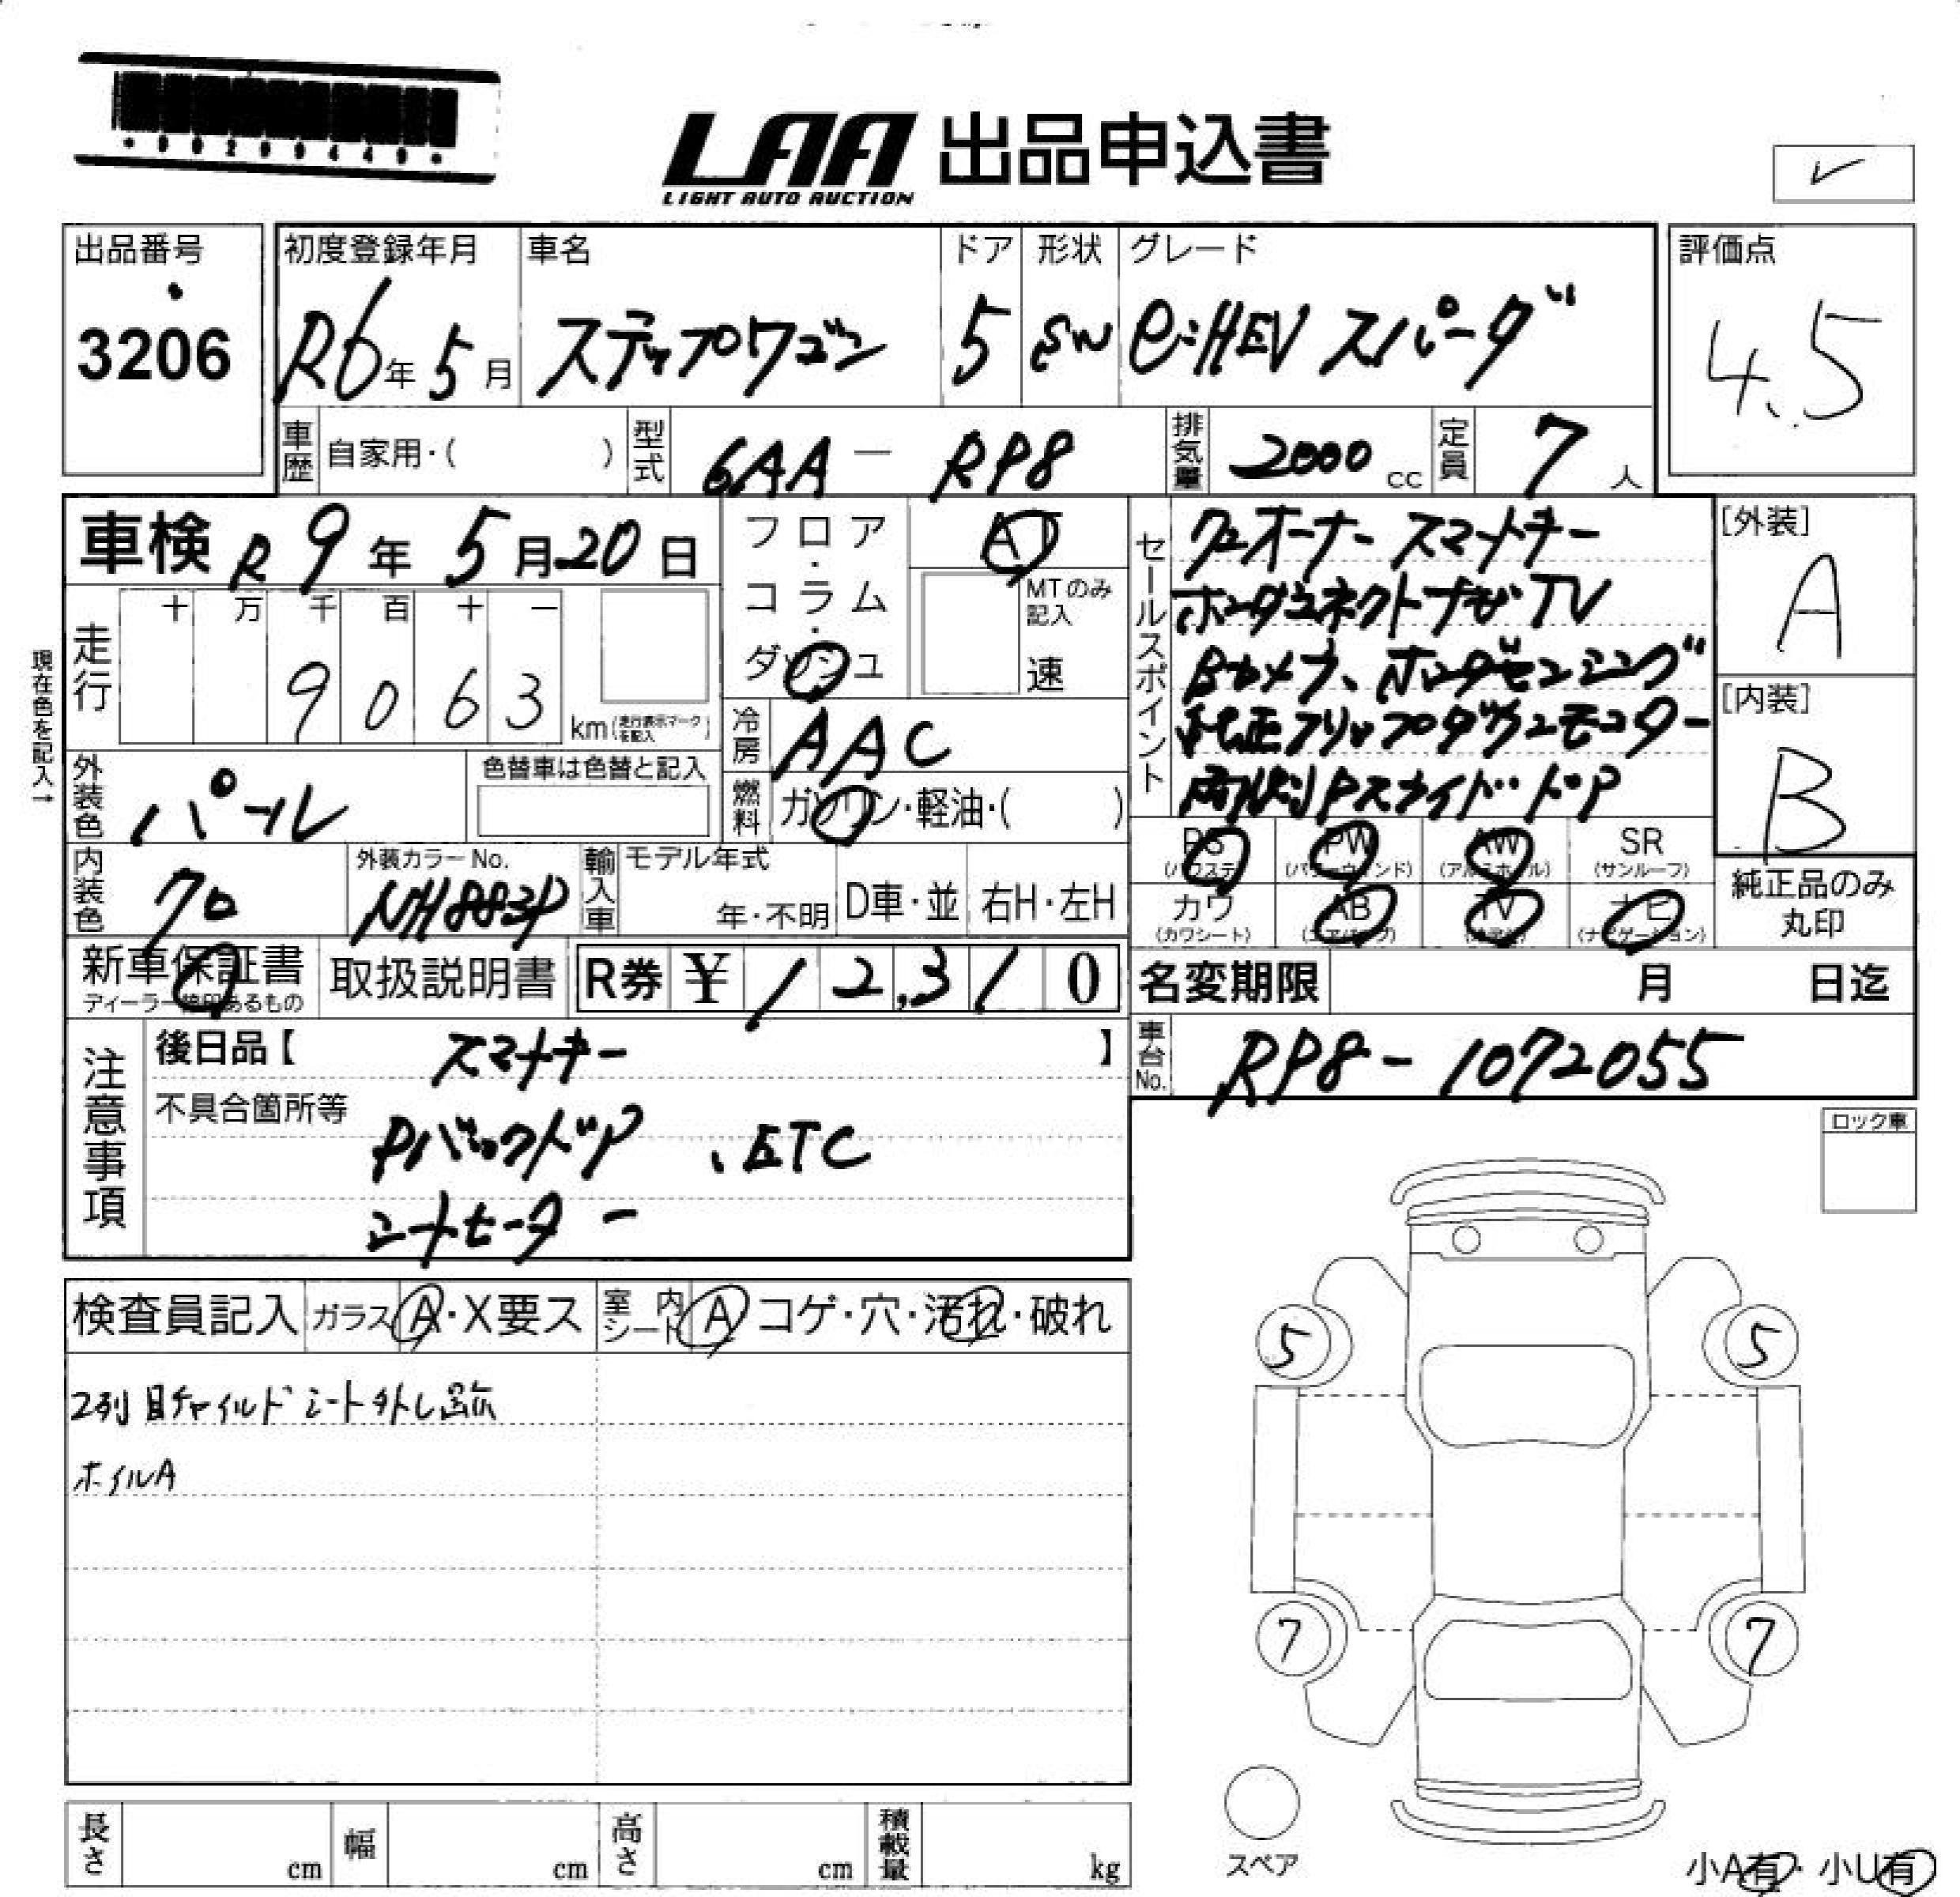 *00209449*
LAA 出品申込書
LIGHT AUTO AUCTION
✓
出品番号
3206
初度登録年月
R6年5月
車名
ステップワゴン
ドア
5
形状
SW
グレード
e:HEV スパーダ
評価点
4.5
車歴 自家用・( )
型式 6AA - RP8
排気量 2000 cc
定員 7 人
車検 R9年5月20日
フロア・コラム・ダッシュ
AT
MTのみ記入
速
セールスポイント
ワンオーナー スマートキー
ホンダコネクトナビ TV
Bカメラ、ホンダセンシング
純正フリップダウンモニター
両側PスライドドP
[外装]
A
[内装]
B
現在色を記入→
走行 十 万 千 百 十 一
9063 km(走行表示マークを記入)
冷房 AAC
燃料 ガソリン・軽油・( )
外装色 パール
色替車は色替と記入
内装色 クロ
外装カラーNo.
NH883P
輸入車 モデル年式
年・不明
D車・並
右H・左H
PS PW AW SR
(パワステ) (パワーウィンド) (アルミホイル) (サンルーフ)
カワ AB TV ナビ
(カワシート) (エアバッグ) (ナビゲーション)
純正品のみ
丸印
新車保証書
取扱説明書
R券 ¥ 12,310
名変期限 月 日迄
車台No. RP8-1072055
注意事項
後日品【 スマートキー 】
不具合箇所等
PバックドP、ETC
シートヒーター
ロック車
検査員記入 ガラス A・X要ス 室内シート A コゲ・穴・汚れ・破れ
2列目チャイルドシート外し跡
ホイルA
5 5
7 7
スペア
長さ cm 幅 cm 高さ cm 積載量 kg
小A有・小U有